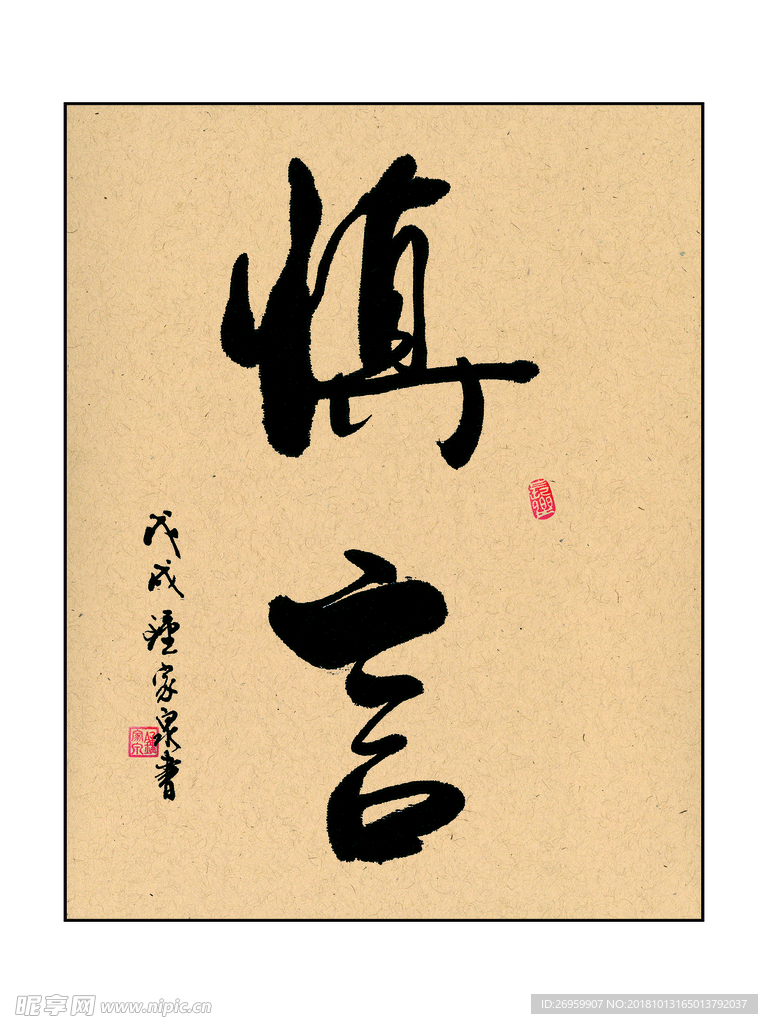 慎言
戊戌 钟家泉书
昵享网 www.nipic.cn
ID:26959907 NO:20181013165013792037